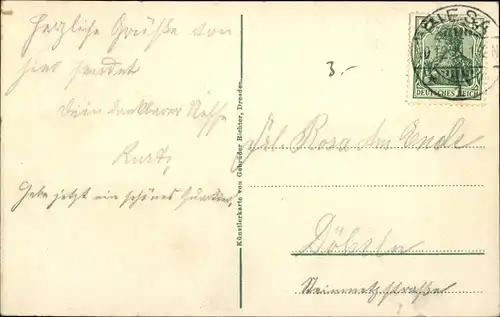 Herzliche Grüße von
hier sendet
Dein dankbarer Neffe
Kurt,
Habe jetzt ein schönes Quartier.
Künstlerkarte von Gebrüder Richter, Dresden.
3.-
RIESA
DEUTSCHES REICH
Frl. Rosa Am Ende
Döbeln
Steinmetzstraße